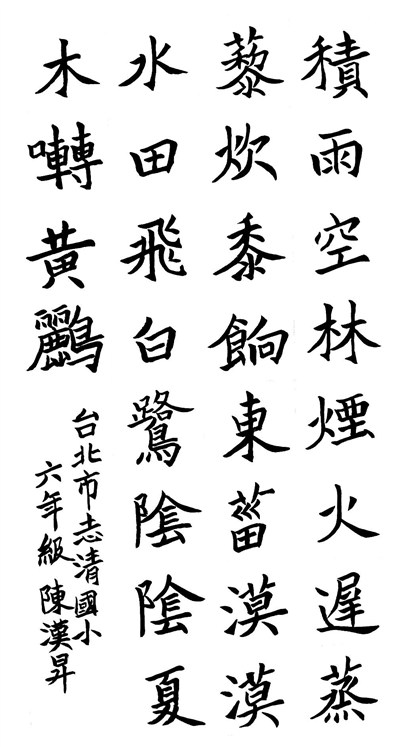 積雨空林煙火遲蒸
藜炊黍餉東菑漠漠
水田飛白鷺陰陰夏
木囀黃鸝
台北市志清國小
六年級陳漢昇